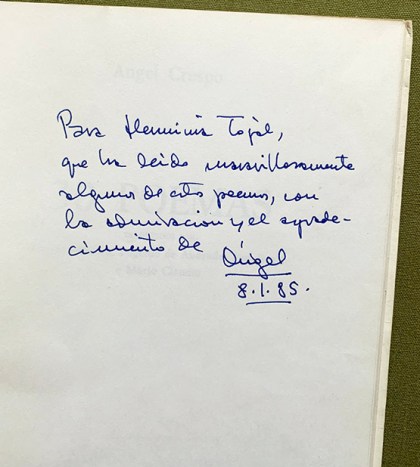 Para Herminia Tojal,
que ha leído maravillosamente
algunos de estos poemas, con
la admiración y el agrade-
cimiento de Ángel
8.1.85.
Angel Crespo
POEMAS